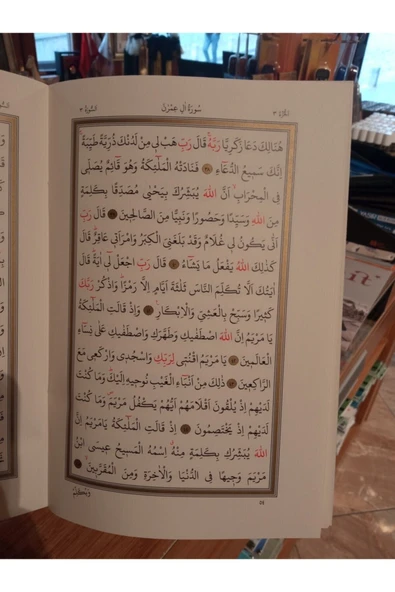 الجزء ٣ سورة آل عمرن السورة ٣
هُنَالِكَ دَعَا زَكَرِيَّا رَبَّهُۚ قَالَ رَبِّ هَبْ لِي مِنْ لَدُنْكَ ذُرِّيَّةً طَيِّبَةًۚ
اِنَّكَ سَمِيعُ الدُّعَٓاءِ ﴿٣٨﴾ فَنَادَتْهُ الْمَلٰٓئِكَةُ وَهُوَ قَٓائِمٌ يُصَلِّي
فِي الْمِحْرَابِۙ اَنَّ اللّٰهَ يُبَشِّرُكَ بِيَحْيٰى مُصَدِّقًا بِكَلِمَةٍ
مِنَ اللّٰهِ وَسَيِّدًا وَحَصُورًا وَنَبِيًّا مِنَ الصَّالِحِينَ ﴿٣٩﴾ قَالَ رَبِّ
اَنّٰى يَكُونُ لِي غُلَامٌ وَقَدْ بَلَغَنِيَ الْكِبَرُ وَامْرَاَتِي عَاقِرٌۜ قَالَ
كَذٰلِكَ اللّٰهُ يَفْعَلُ مَا يَشَٓاءُ ﴿٤٠﴾ قَالَ رَبِّ اجْعَلْ لِٓي اٰيَةًۜ قَالَ
اٰيَتُكَ اَلَّا تُكَلِّمَ النَّاسَ ثَلٰثَةَ اَيَّامٍ اِلَّا رَمْزًاۜ وَاذْكُرْ رَبَّكَ
كَثِيرًا وَسَبِّحْ بِالْعَشِيِّ وَالْاِبْكَارِ۟ ﴿٤١﴾ وَاِذْ قَالَتِ الْمَلٰٓئِكَةُ
يَا مَرْيَمُ اِنَّ اللّٰهَ اصْطَفٰيكِ وَطَهَّرَكِ وَاصْطَفٰيكِ عَلٰى نِسَٓاءِ
الْعَالَمِينَ ﴿٤٢﴾ يَا مَرْيَمُ اقْنُتِي لِرَبِّكِ وَاسْجُدِي وَارْكَعِي مَعَ
الرَّاكِعِينَ ﴿٤٣﴾ ذٰلِكَ مِنْ اَنْبَٓاءِ الْغَيْبِ نُوحِيهِ اِلَيْكَۜ وَمَا كُنْتَ
لَدَيْهِمْ اِذْ يُلْقُونَ اَقْلَامَهُمْ اَيُّهُمْ يَكْفُلُ مَرْيَمَۖ وَمَا كُنْتَ
لَدَيْهِمْ اِذْ يَخْتَصِمُونَ ﴿٤٤﴾ اِذْ قَالَتِ الْمَلٰٓئِكَةُ يَامَرْيَمُ اِنَّ
اللّٰهَ يُبَشِّرُكِ بِكَلِمَةٍ مِنْهُۗ اِسْمُهُ الْمَسِيحُ عِيسَى ابْنُ
مَرْيَمَ وَجِيهًا فِي الدُّنْيَا وَالْاٰخِرَةِ وَمِنَ الْمُقَرَّبِينَۙ ﴿٤٥﴾
وَيُكَلِّمُ